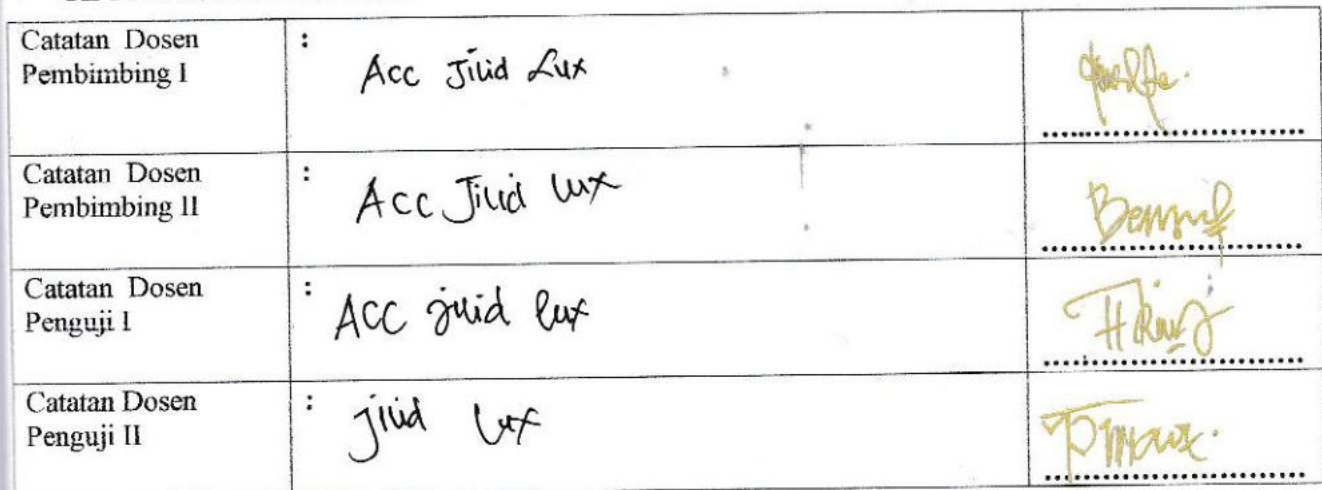 Catatan Dosen
Pembimbing I
:
Acc Jilid Lux
Catatan Dosen
Pembimbing II
:
Acc Jilid lux
Catatan Dosen
Penguji I
:
ACC jilid lux
Catatan Dosen
Penguji II
:
jilid lux